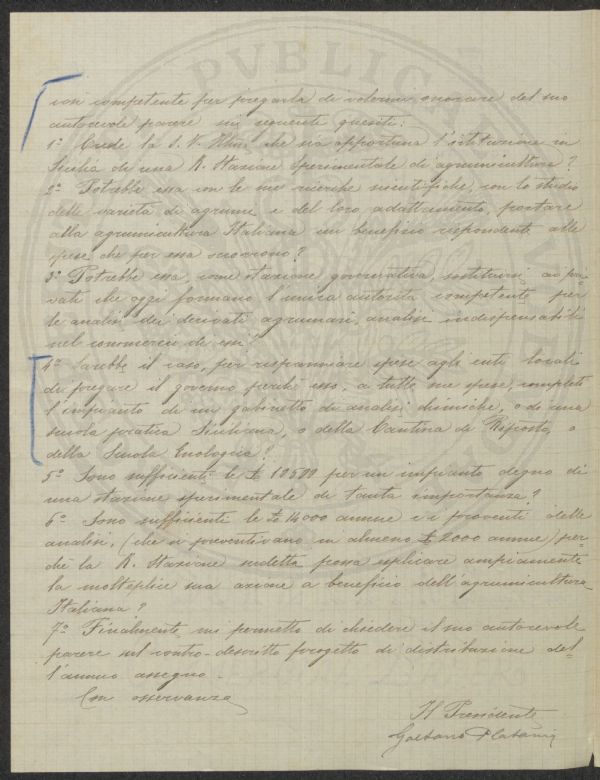 così competente per pregarla di volermi onorare del suo
autorevole parere sui seguenti quesiti:
1º Crede la S. V. Illma. che sia opportuna l'istituzione in
Sicilia di una R. Stazione Sperimentale di agrumicultura?
2º Potrebbe essa con le sue ricerche scientifiche, con lo studio
delle varietà di agrumi e del loro adattamento, portare
alla agrumicultura Italiana un beneficio rispondente alle
spese che per essa occorrono?
3º Potrebbe essa, come stazione governativa, sostituirsi ai pri-
vati che oggi formano l'unica autorità competente per
le analisi dei derivati agrumari, analisi indispensabili
nel commercio di essi?
4º Sarebbe il caso, per risparmiare spese agli enti locali
di pregare il governo perchè esso, a tutte sue spese, completi
l'impianto di un gabinetto di analisi chimiche, o di una
scuola pratica Siciliana, o della Cantina di Riposto, o
della Scuola Enologica?
5º Sono sufficienti le £ 10500 per un impianto degno di
una stazione sperimentale di tanta importanza?
6º Sono sufficienti le £ 14000 annue e i proventi delle
analisi, (che si preventivano in almeno £ 2000 annue) per-
chè la R. Stazione sudetta possa esplicare ampiamente
la molteplice sua azione a beneficio dell'agrumicultura
Italiana?
7º Finalmente mi permetto di chiedere il suo autorevole
parere sul contro-descritto progetto di distribuzione del-
l'annuo assegno.
Con osservanza
Il Presidente
Gaetano Platania
PVBLICA